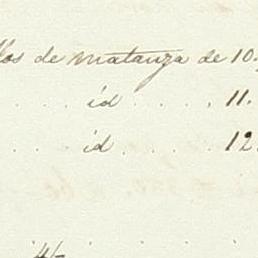 los de matanza de 10.
. . . id . . . . 11.
. . . id . . . . 12